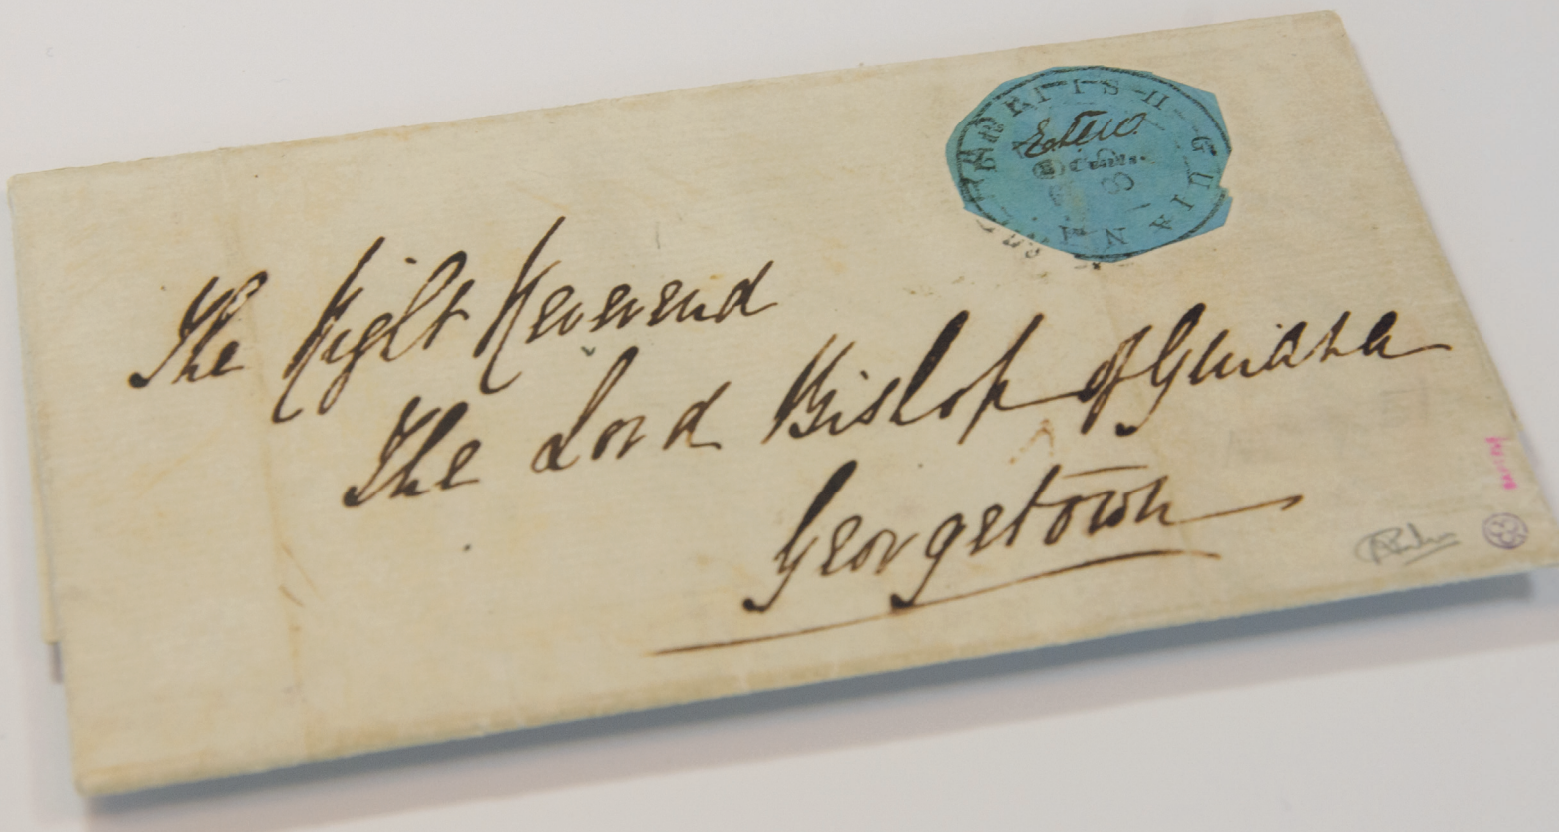 BRITISH GUIANA
Cents.
The Right Reverend
The Lord Bishop of Guiana
Georgetown